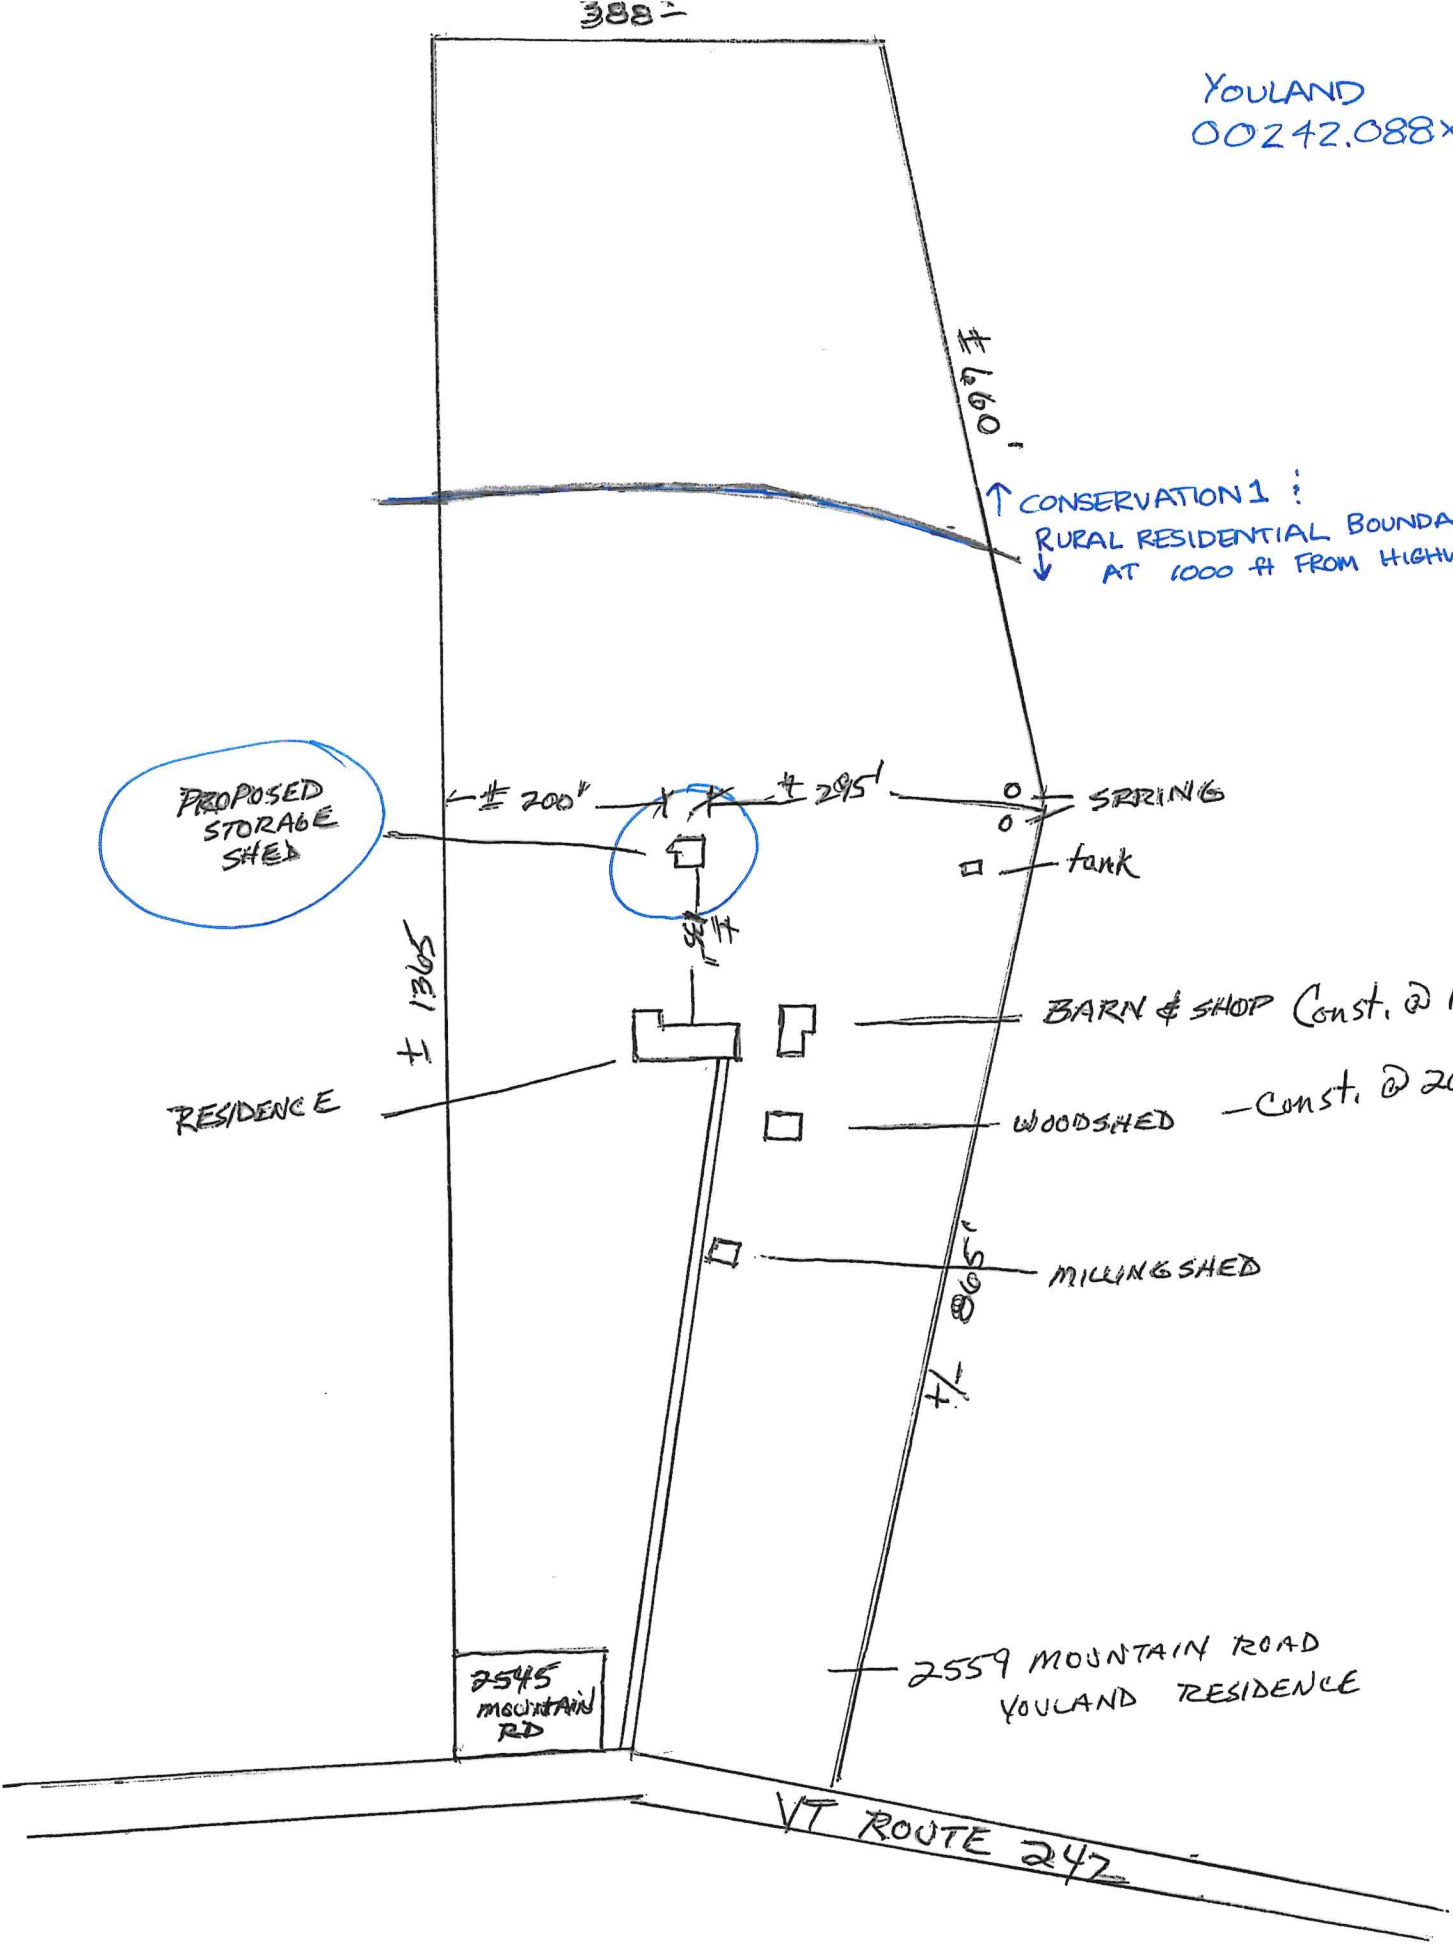 388'±
YOULAND
00242.088X
± 660'
↑ CONSERVATION 1 :
RURAL RESIDENTIAL BOUNDA
↓ AT 1000 ft FROM HIGHW
PROPOSED
STORAGE
SHED
± 200"
± 295'
SPRING
tank
±
± 1365
BARN & SHOP Const. @ 1
RESIDENCE
WOODSHED - Const. @ 20
MILLING SHED
+/- 865'
2559 MOUNTAIN ROAD
YOULAND RESIDENCE
2545
MOUNTAIN
RD
VT ROUTE 242